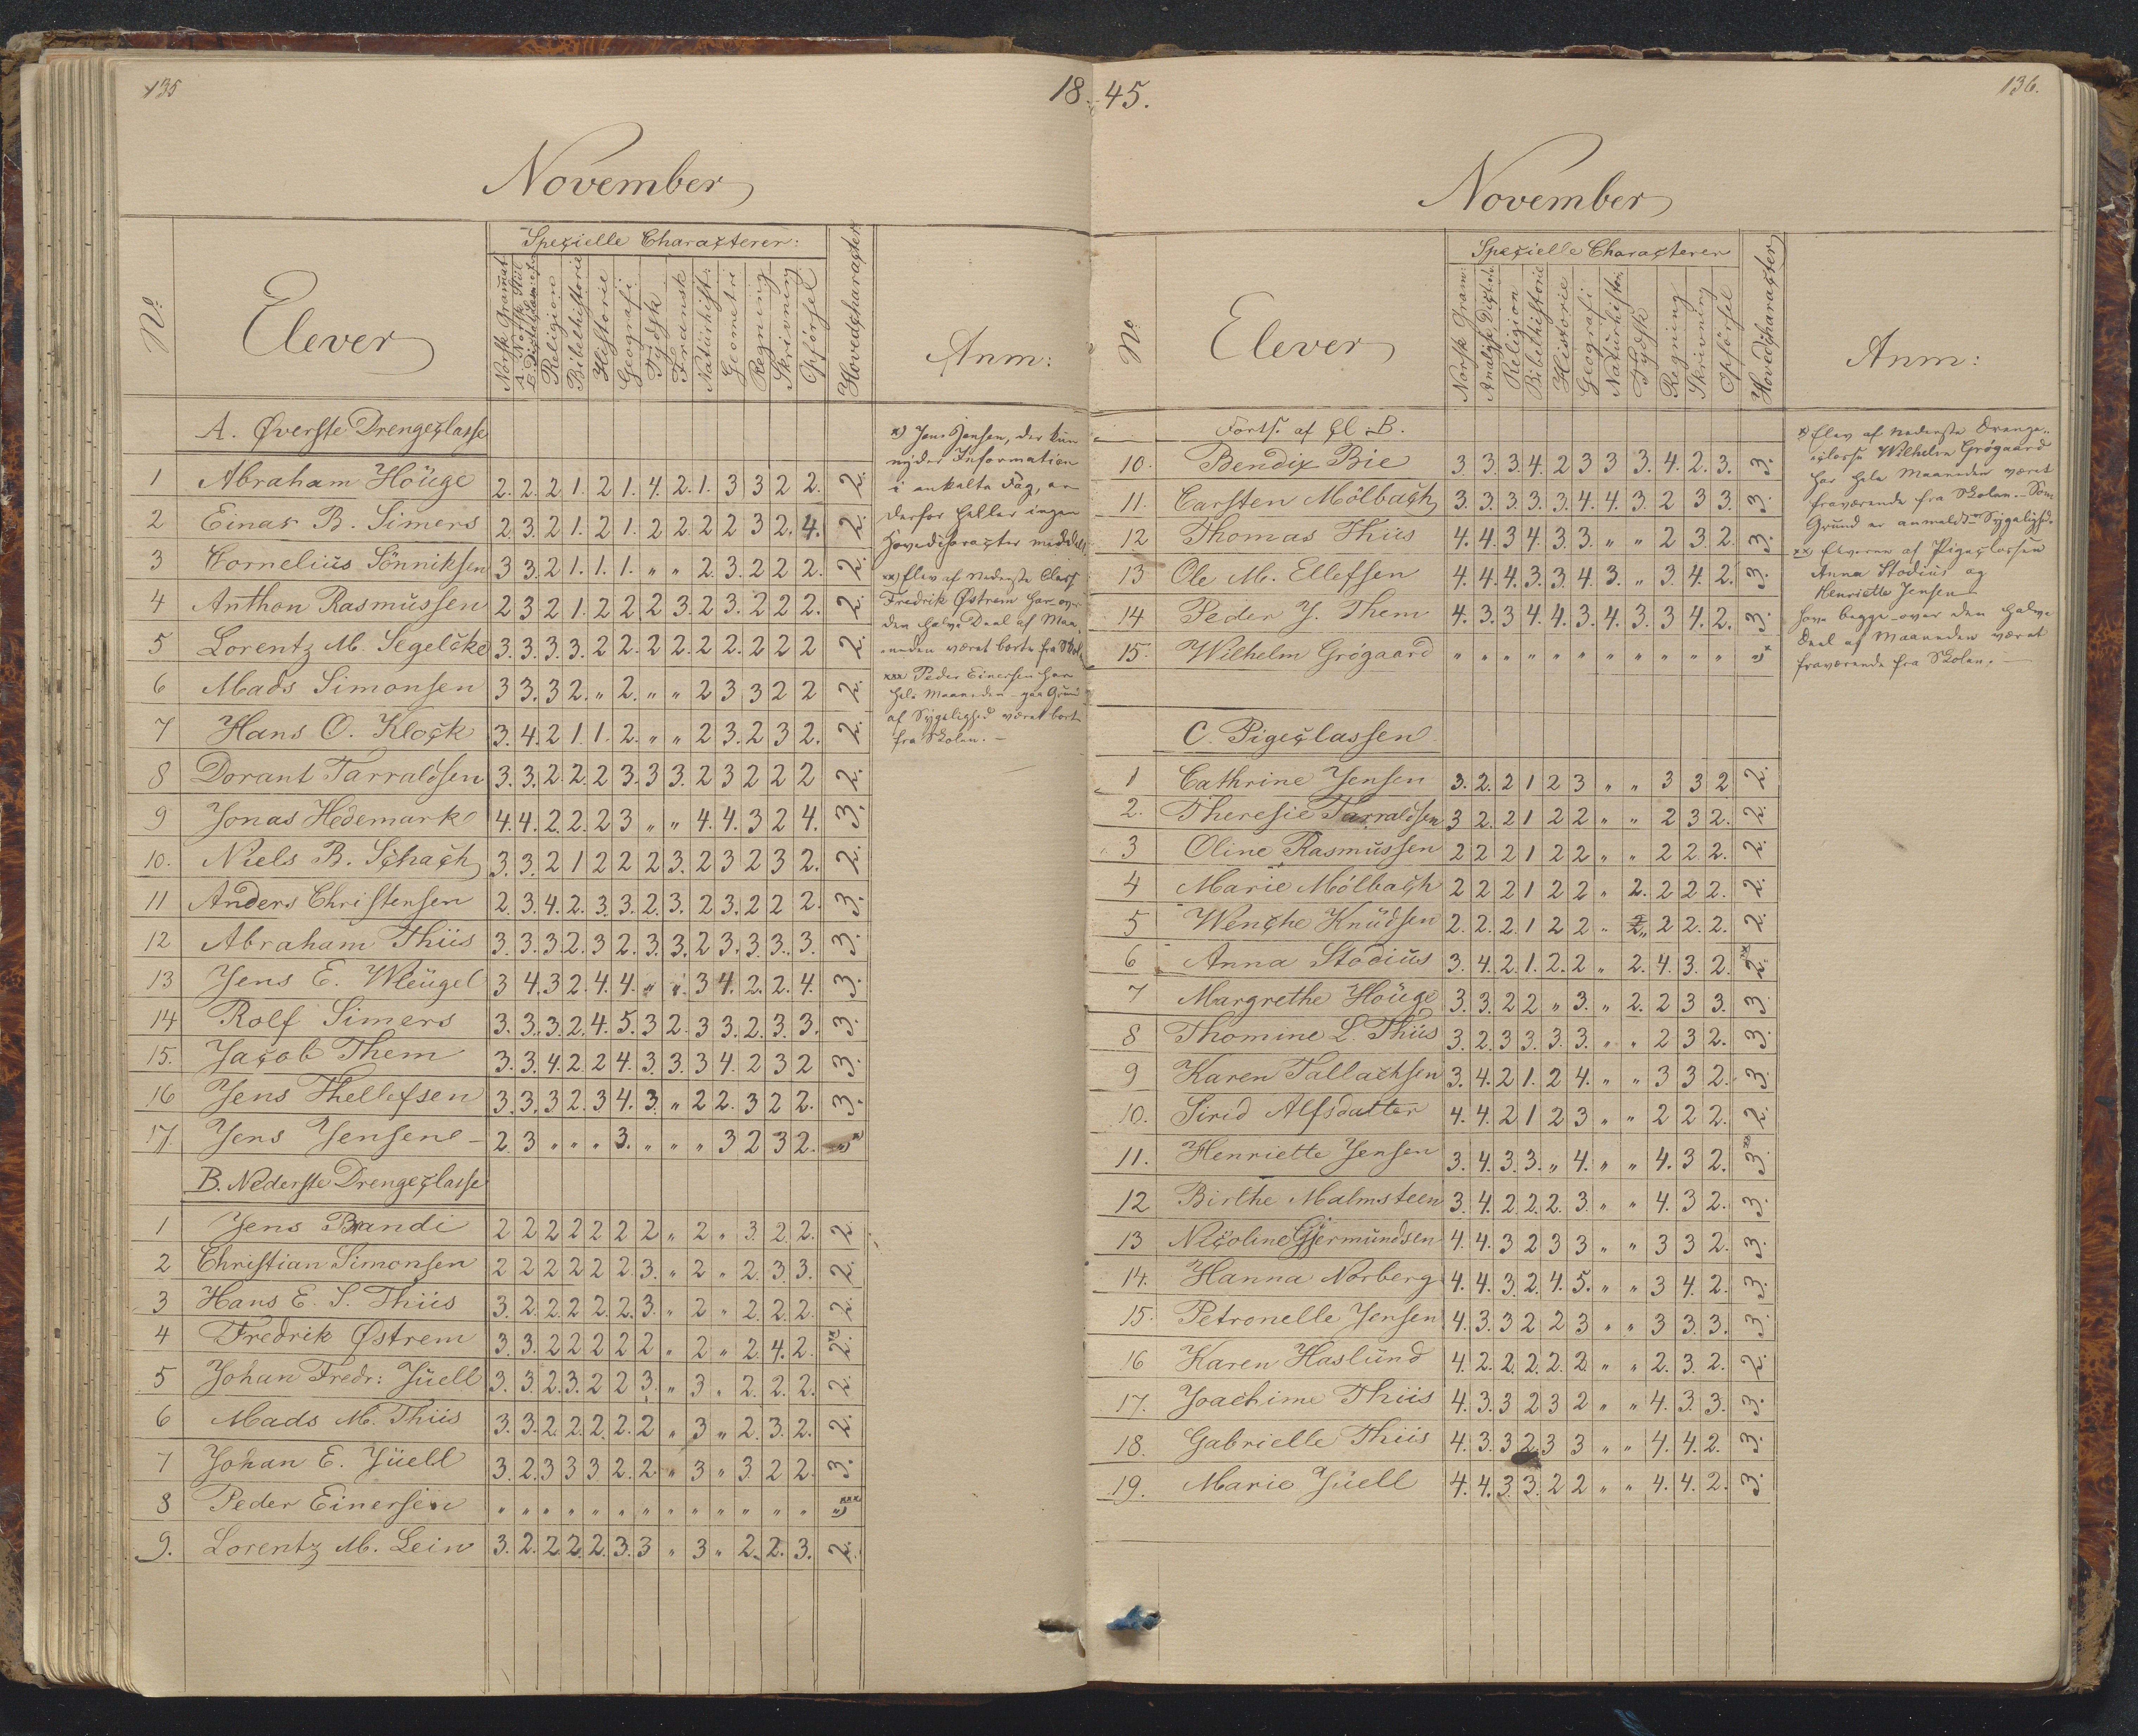 135
18
November
Nº
Elever
Specielle Characterer:
Norsk Gramat
A. Norsk Stiil
B. Dictat
Religion
Bibelhistorie
Historie
Geografi
Tydsk
Fransk
Naturhist:
Geometri
Regning
Skrivning
Opførsel
Hovedcharacter
Anm:
A. Øverste Drengeclasse
1 Abraham Houge 2. 2. 2 1. 2 1. 4. 2. 1. 3 3 2 2. 2.
2 Einar B. Simers 2 3. 2 1. 2 1. 2 2 2 2 3 2. 4. 2.
3 Cornelius Sönniksen 3 3. 2 1. 1. 1. " " 2. 3. 2 2 2. 2.
4 Anthon Rasmussen 2 3 2 1. 2 2 2 3. 2 3. 2 2 2. 2.
5 Lorentz M. Segelcke 3. 3. 3. 3. 2 2. 2 2. 2 2. 2 2 2 2.
6 Mads Simonsen 3 3. 3 2. " 2. " " 2 3 3 2 2 2.
7 Hans O. Klock 3. 4. 2 1 1. 2. " " 2 3. 2 3 2. 2.
8 Dorant Tarraldsen 3. 3. 2. 2. 2 3. 3 3. 2 3 2 2 2 2.
9 Jonas Hedemark 4. 4. 2. 2. 2 3 " " 4. 4. 3 2 4. 3.
10. Niels B. Schach 3. 3. 2 1 2 2 2 3. 2 3 2 3 2. 2.
11 Anders Christensen 2. 3. 4. 2. 3. 3. 2. 3. 2 3. 2 2 2. 3.
12 Abraham Thiis 3. 3. 3. 2. 3 2. 3. 3. 2 3. 3. 3. 3. 3.
13 Jens E. Wleugel 3 4. 3 2. 4. 4. " " 3 4. 2. 2. 4. 3.
14 Rolf Simers 3. 3. 3. 2. 4. 5. 3 2. 3 3. 2. 3. 3. 3.
15. Jacob Them 3. 3. 4. 2. 2 4. 3. 3. 3 4. 2 3 2 3.
16 Jens Thellefsen 3. 3. 3 2. 3 4. 3. " 2 2. 3 2 2. 3.
17. Jens Jensen 2. 3 " " " 3. " " " 3 2 3 2. " x
B. Nederste Drengeclasse
1 Jens Brandi 2 2 2 2 2 2 2 " 2 " 3. 2. 2. 2.
2 Christian Simonsen 2 2 2 2 2 2. 3. " 2 " 2. 3. 3. 2.
3 Hans E. S. Thiis 3. 2. 2. 2 2. 2. 3. " 2 " 2. 2. 2. 2.
4 Fredrik Østrem 3. 3. 2 2 2 2 2 " 2 " 2. 4. 2. 2. xx
5 Johan Fredr: Juell 3. 3. 2. 3. 2 2 3. " 3. " 2. 2. 2. 2.
6 Mads M. Thiis 3. 3. 2. 2. 2. 2. 2 " 3 " 2. 3. 2. 2.
7 Johan E. Juell 3. 2. 3 3 3. 2. 2. " 3 " 3. 2 2. 3.
8 Peder Einersen " " " " " " " " " " " " " " xxx
9. Lorentz M. Lein 3. 2. 2. 2. 2. 3. 3 " 3 " 2. 2. 3. 2.
x) Jens Jensen, der kun
nyder Information
i enkelte Fag, er
derfor heller ingen
Hovedcharacter meddelt
xx) Elev af Nederste Class
Fredrik Østrem har over
den halve Deel af Maa-
neden været borte fra Skol
xxx Peder Einersen har
hele Maaneden paa Grund
af Sygelighed været borte
fra Skolen. —
45.
136.
November
Nº
Elever
Specielle Characterer
Norsk Gram:
Analyse, Dictat
Religion
Bibelhistorie
Historie
Geografi
Naturhistor.
Tydsk
Regning
Skrivning
Opførsel
Hovedcharacter
Anm:
Forts. af Cl. B.
10. Bendix Bie 3. 3. 3. 4. 2 3 3 3. 4. 2. 3. 3.
11. Carsten Mølbach 3. 3. 3. 3. 3. 4. 4. 3. 2 3 3. 3.
12 Thomas Thiis 4. 4. 3 4. 3. 3. " " 2 3. 2. 3.
13 Ole M. Ellefsen 4. 4. 4. 3. 3. 4. 3. " 3. 4. 2. 3.
14 Peder J. Them 4. 3. 3 4. 4. 3. 4. 3. 3 4. 2. 3.
15. Wilhelm Grögaard " " " " " " " " " " " " x
C. Pigeclassen
1 Cathrine Jensen 3. 2. 2 1 2 3 " " 3 3 2 2.
2. Theresie Tarraldsen 3 2. 2 1 2 2 " " 2 3 2. 2.
3 Oline Rasmussen 2 2 2 1 2 2 " " 2 2 2. 2.
4 Marie Mölbach 2 2 2 1 2 2 " 2. 2 2 2. 2.
5 Wenche Knudsen 2. 2. 2. 1 2 2 " 2 " 2 2. 2. 2.
6 Anna Stodius 3. 4. 2. 1. 2. 2 " 2. 4. 3. 2. 2. xx
7 Margrethe Houge 3. 3. 2 2 " 3. " 2. 2 3 3. 3
8 Thomine L. Thiis 3. 2. 3 3. 3. 3. " " 2 3 2. 3.
9 Karen Tallachsen 3. 4. 2 1. 2 4. " " 3 3 2. 3.
10. Sirid Alfsdatter 4. 4. 2 1 2 3 " " 2 2 2. 2.
11. Henriette Jensen 3. 4. 3. 3. " 4. " " 4. 3 2. 3. xx
12 Birthe Malmsteen 3. 4. 2. 2. 2. 3. " " 4. 3 2. 3.
13 Nicoline Gjermundsen 4. 4. 3 2 3 3 " " 3 3 2. 3.
14. Hanna Norberg 4. 4. 3. 2. 4. 5. " " 3 4. 2. 3.
15. Petronelle Jensen 4. 3. 3 2 2 3 " " 3 3. 3. 3.
16 Karen Haslund 4. 2. 2. 2. 2. 2 " " 2. 3. 2. 2.
17. Joachime Thiis 4. 3. 3 2 3 2 " " 4. 3. 3. 3.
18. Gabrielle Thiis 4. 3. 3 2. 3 3 " " 4. 4. 2. 3.
19. Marie Juell 4. 4. 3. 3. 2 2 " " 4. 4. 2. 3.
x) Elev af nederste Drenge-
classe Wilhelm Grögaard
har hele Maaneden været
fraværende fra Skolen. — Som
Grund er anmeldt Sygelighed.
xx) Eleverne af Pigeclassen
Anna Stodius og
Henriette Jensen
have begge over den halve
Deel af Maaneden været
fraværende fra Skolen. —